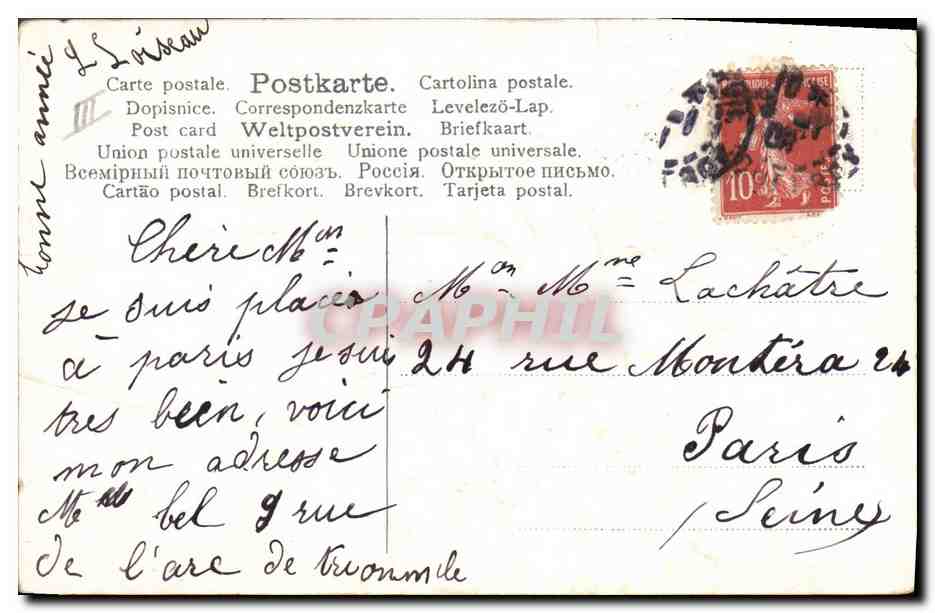 bonne année
L Loiseau
III
Carte postale. Postkarte. Cartolina postale.
Dopisnice. Correspondenzkarte Levelező-Lap.
Post card Weltpostverein. Briefkaart.
Union postale universelle Unione postale universale.
Всемірный почтовый союзъ. Россія. Открытое письмо.
Cartão postal. Brefkort. Brevkort. Tarjeta postal.
10c
Chere Mon
je suis placés
à paris je sui
tres bien, voici
mon adresse
bel 9 rue
de l'arc de
Mon Mne Lachâtre
24 rue Montéra 24
Paris
Seine
CPAPHIL